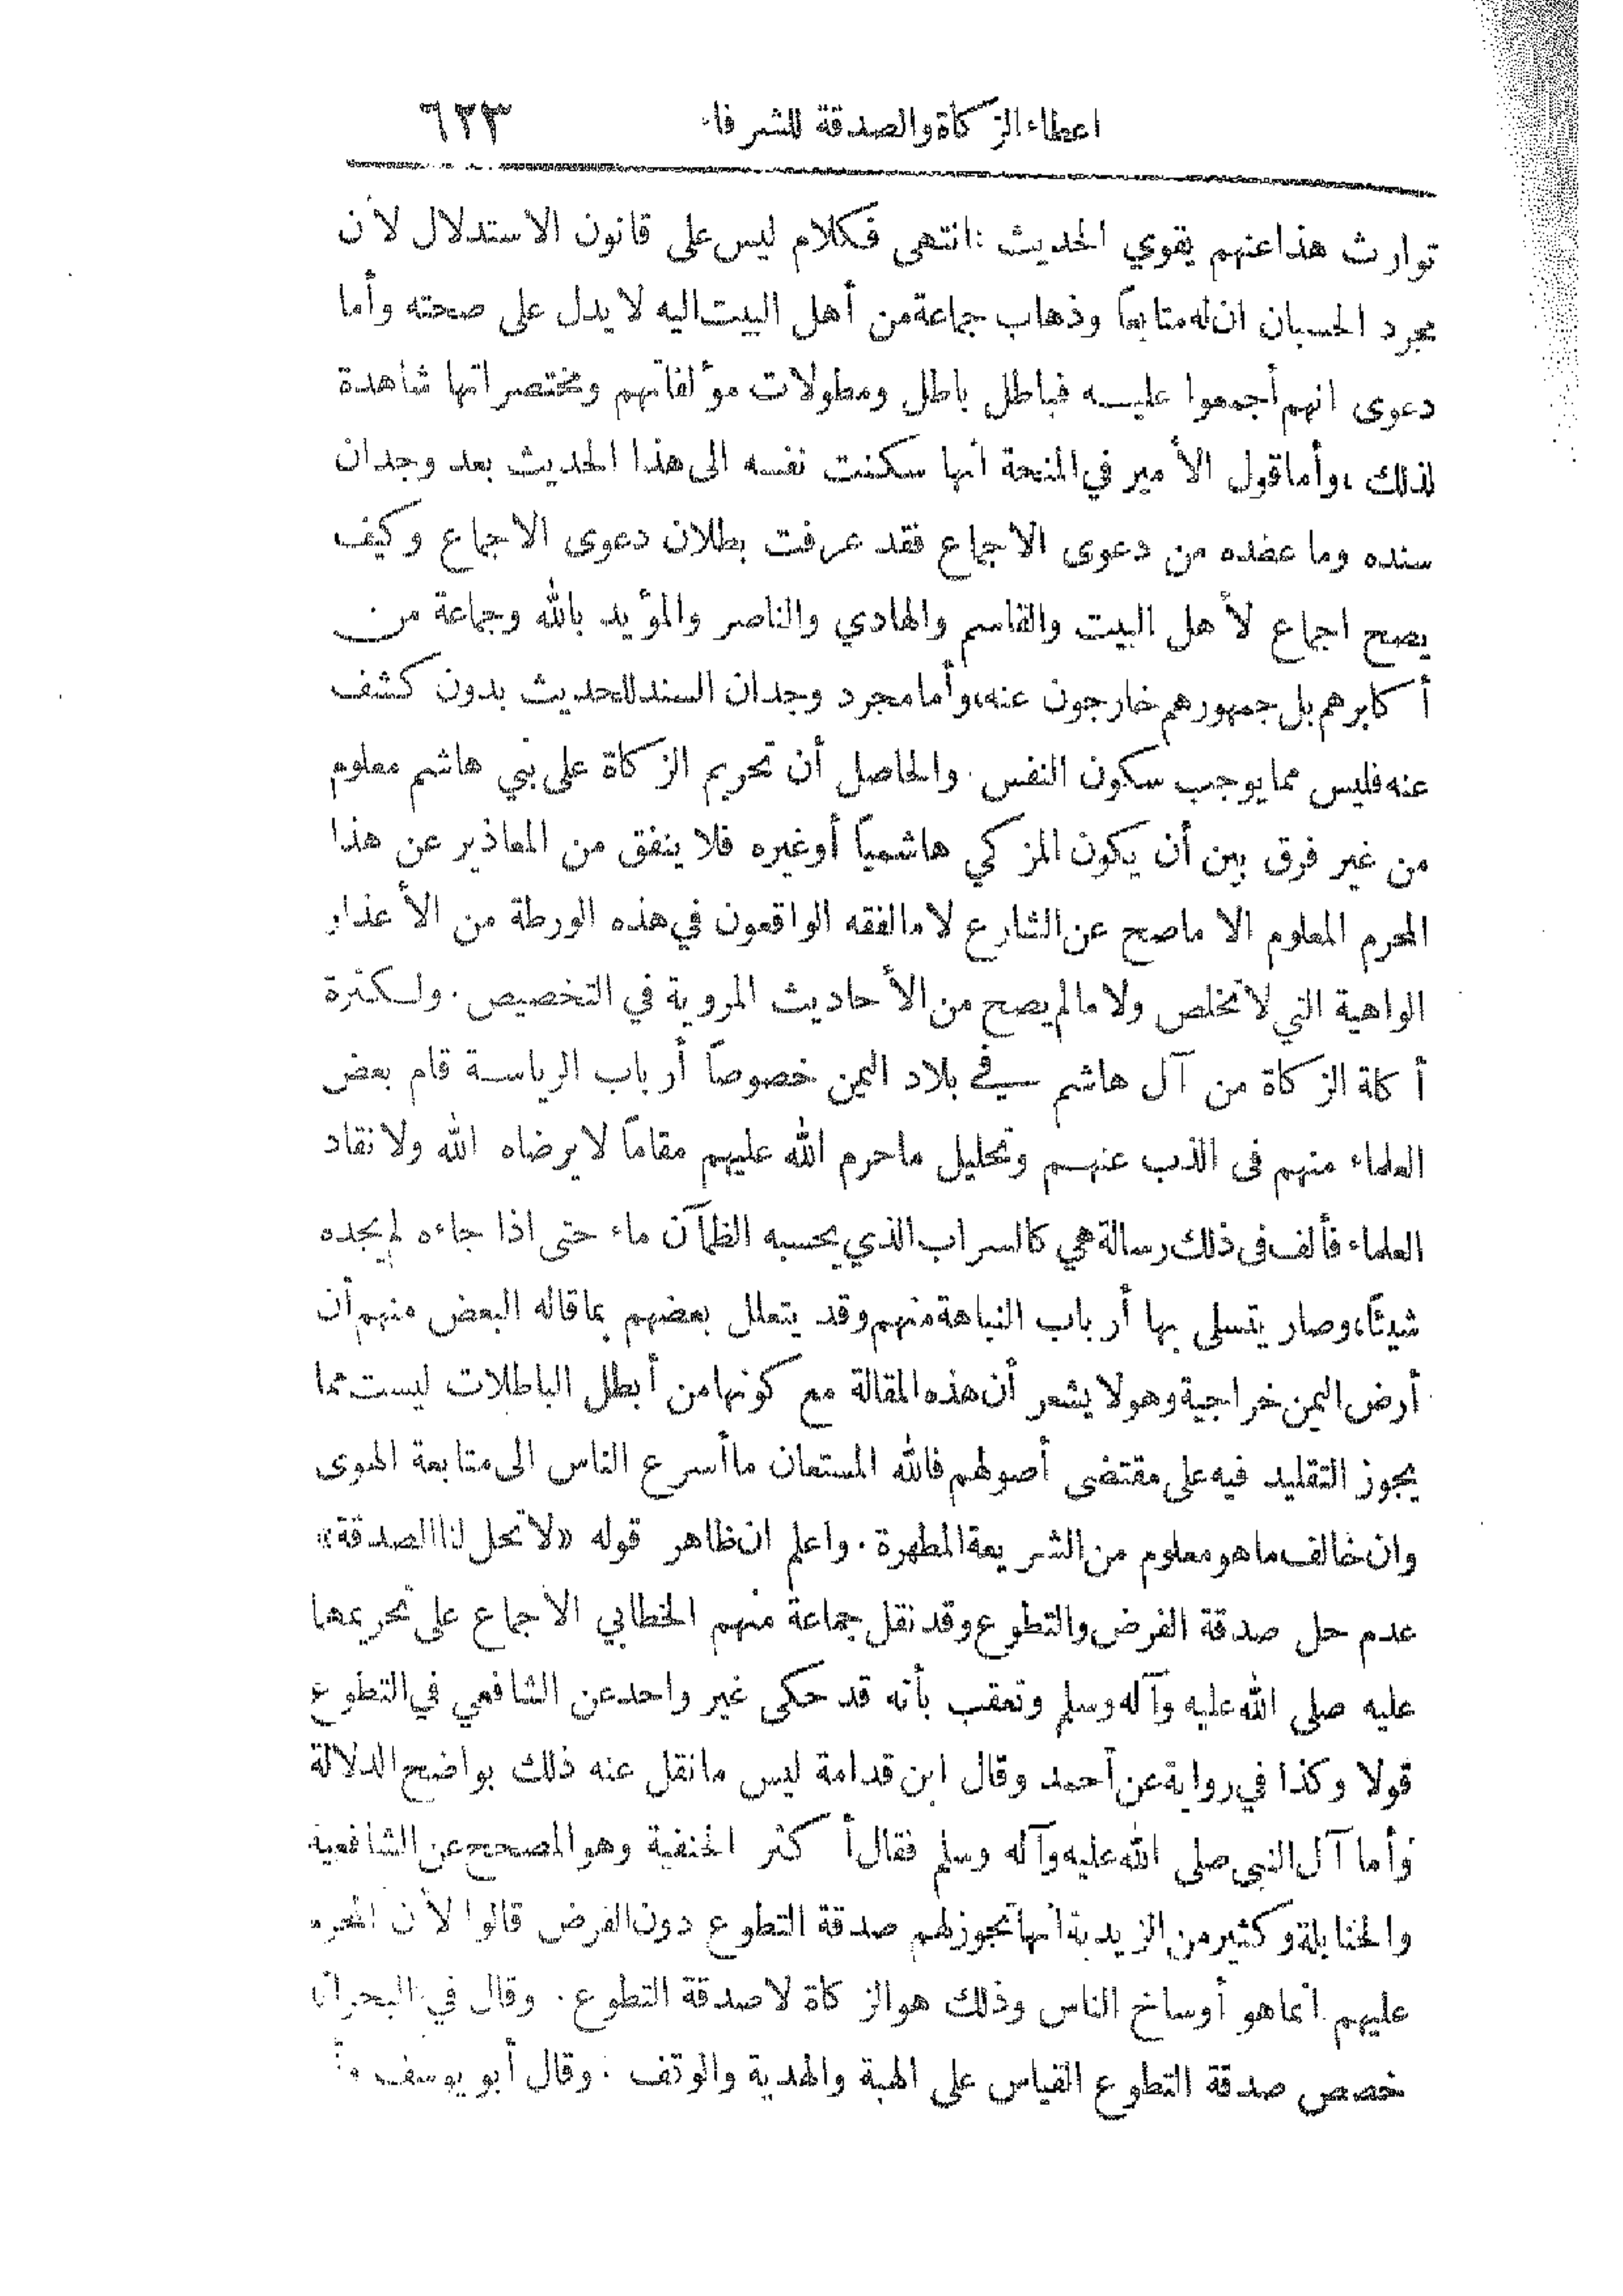 اعطاء الزكاة والصدقة للشرفاء ٦٢٣
توارث هذا عنهم يقوي الحديث : انتهى فكلام ليس على قانون الاستدلال لأن
مجرد الحسبان ان له متابعاً وذهاب جماعة من أهل البيت اليه لا يدل على صحته وأما
دعوى انهم أجمعوا عليه فباطل باطل ومطولات مؤلفاتهم ومختصراتها شاهدة
لذلك ، وأما قول الأمير في المنحة انها سكنت نفسه الى هذا الحديث بعد وجدان
سنده وما عضده من دعوى الاجماع فقد عرفت بطلان دعوى الاجماع وكيف
يصح اجماع لأهل البيت والقاسم والهادي والناصر والمؤيد بالله وجماعة من
أكابرهم بل جمهورهم خارجون عنه، وأما مجرد وجدان السند للحديث بدون كشف
عنه فليس مما يوجب سكون النفس . والحاصل أن تحريم الزكاة على بني هاشم معلوم
من غير فرق بين أن يكون المزكي هاشمياً أو غيره فلا ينفق من المعاذير عن هذا
المحرم المعلوم الا ما صح عن الشارع لا ما لفقه الواقعون في هذه الورطة من الأعذار
الواهية التي لا تخلص ولا ما لم يصح من الأحاديث المروية في التخصيص . ولكثرة
أكلة الزكاة من آل هاشم في بلاد اليمن خصوصاً أرباب الرياسة قام بعض
العلماء منهم فى الذب عنهم وتحليل ما حرم الله عليهم مقاماً لا يرضاه الله ولا نقاد
العلماء فألف فى ذلك رسالة هي كالسراب الذي يحسبه الظمآن ماء حتى اذا جاءه لم يجده
شيئاً، وصار يتسلى بها أرباب النباهة منهم وقد يتعلل بعضهم بما قاله البعض منهم أن
أرض اليمن خراجية وهو لا يشعر أن هذه المقالة مع كونها من أبطل الباطلات ليست مما
يجوز التقليد فيه على مقتضى أصولهم فالله المستعان ما أسرع الناس الى متابعة الهوى
وان خالف ما هو معلوم من الشريعة المطهرة . واعلم ان ظاهر قوله «لا تحل لنا الصدقة»
عدم حل صدقة الفرض والتطوع وقد نقل جماعة منهم الخطابي الاجماع على تحريمها
عليه صلى الله عليه وآله وسلم وتعقب بأنه قد حكى غير واحد عن الشافعي في التطوع
قولا وكذا في رواية عن أحمد وقال ابن قدامة ليس ما نقل عنه ذلك بواضح الدلالة
وأما آل النبى صلى الله عليه وآله وسلم فقال أكثر الحنفية وهو المصحح عن الشافعية
والحنابلة وكثير من الزيدية انها تجوز لهم صدقة التطوع دون الفرض قالوا لأن المحرم
عليهم انما هو أوساخ الناس وذلك هو الزكاة لا صدقة التطوع . وقال في البحر ان
خصص صدقة التطوع القياس على الهبة والهدية والوقف . وقال أبو يوسف